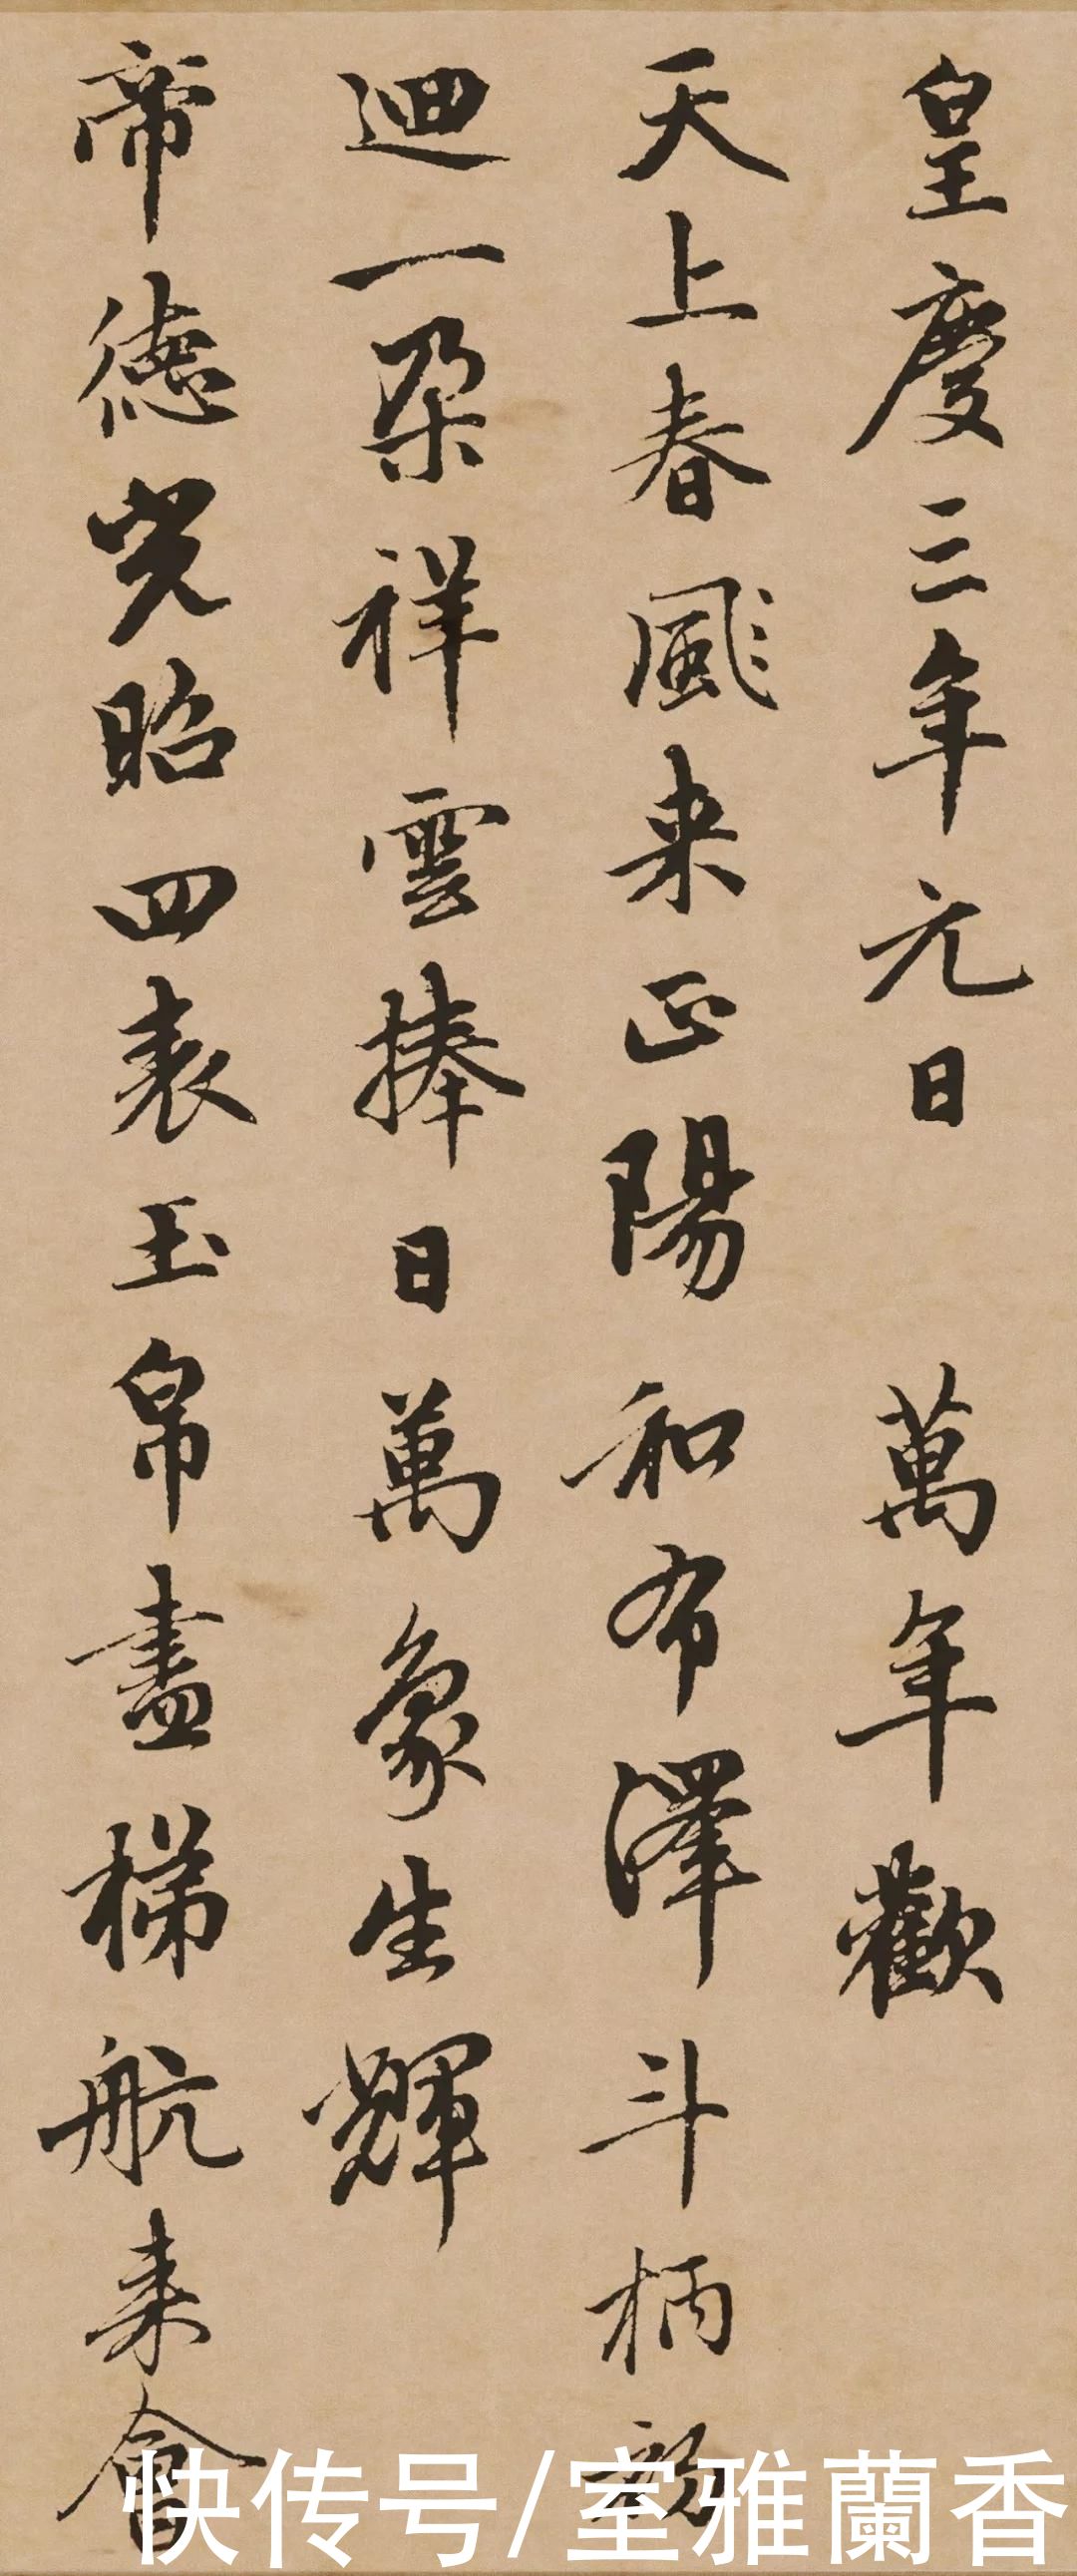 皇慶三年元日 萬年歡
天上春颩来正陽和布澤斗柄初
迴一朶祥雲捧日萬象生輝
帝德光昭四表玉帛盡梯航来會
快传号/室雅蘭香